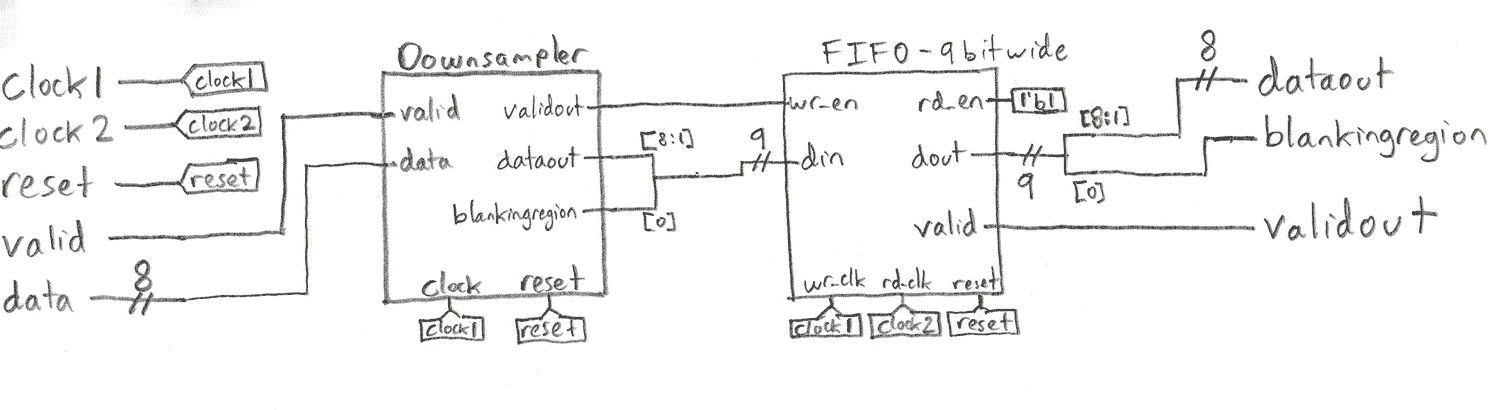 clock1
clock1
clock2
clock2
reset
reset
valid
data
8
Downsampler
valid
validout
data
dataout
blankingregion
clock
reset
clock1
reset
[8:1]
[0]
9
FIFO-9bitwide
wr_en
rd_en
1'b1
din
dout
valid
wr_clk
rd_clk
reset
clock1
clock2
reset
9
[8:1]
[0]
8
dataout
blankingregion
validout